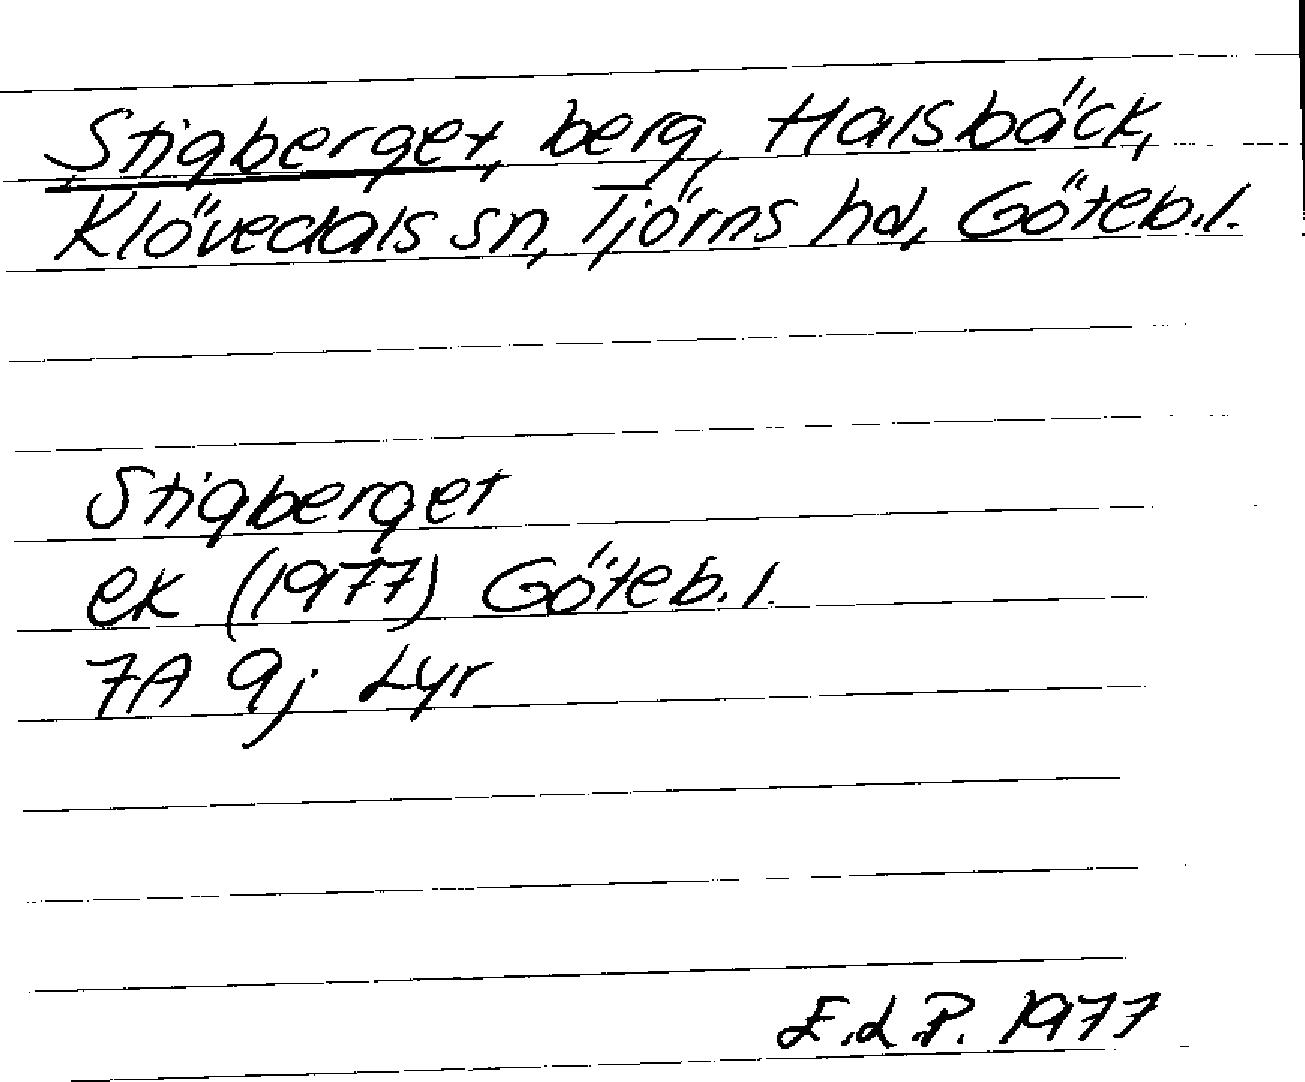 Stigberget, berg, Halsbäck,
Klövedals sn, Tjörns hd, Göteb.l.
Stigberget
ek (1977) Göteb.l.
7A 9j Lyr
E.L.P. 1977